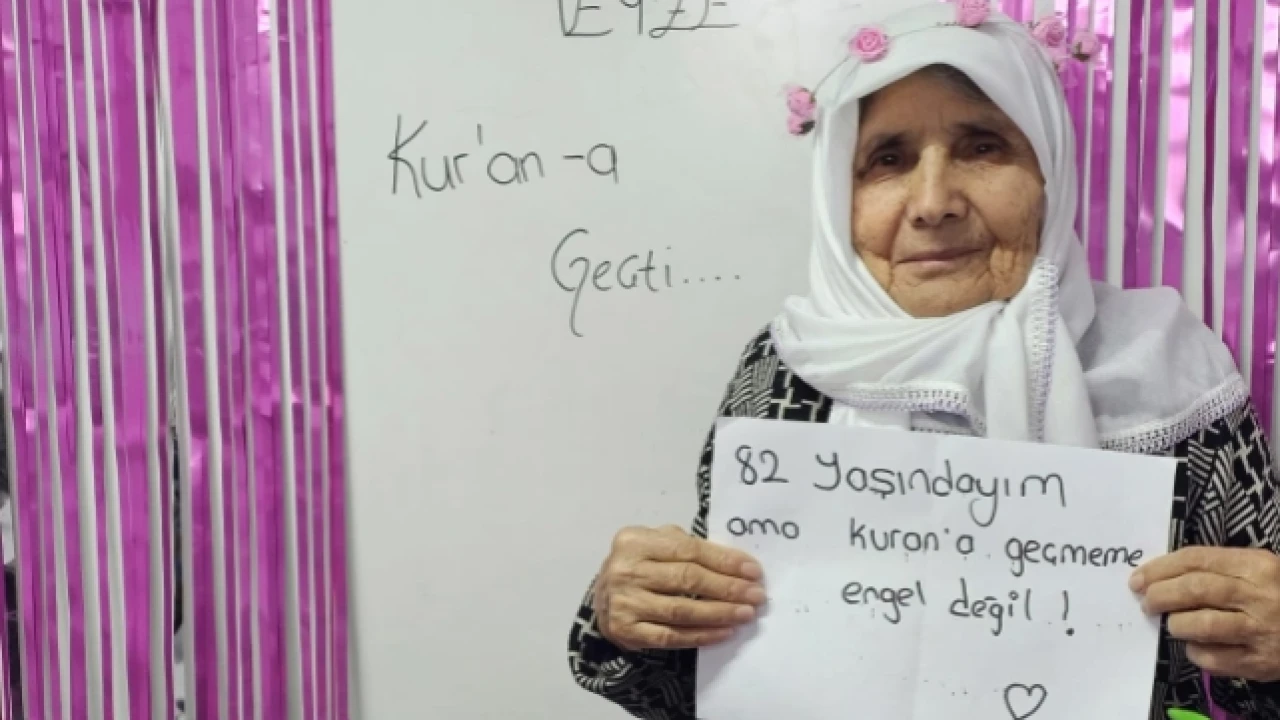 Kur'an-a
Geçti....
82 Yaşındayım
ama Kuran'a geçmeme
engel değil !